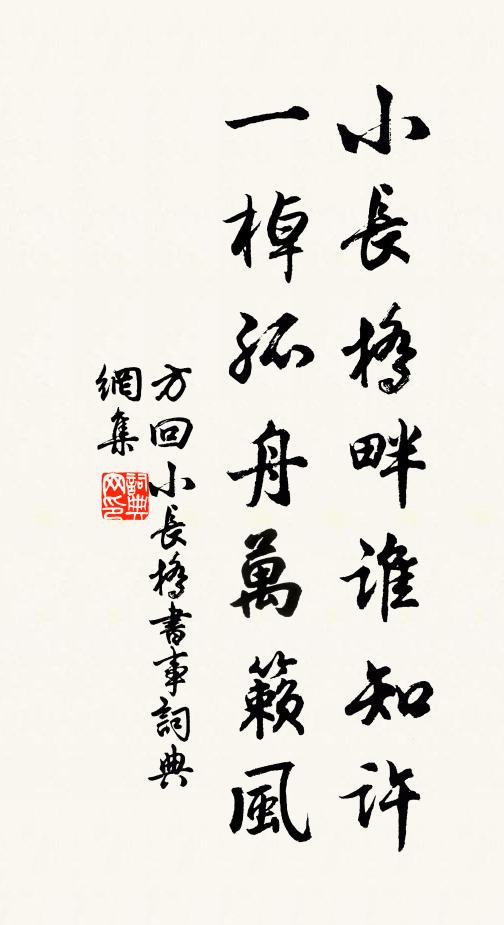 小長橋畔誰知許
一棹孤舟萬籟風
方回小長橋書事詞典
網集
詞典
网印